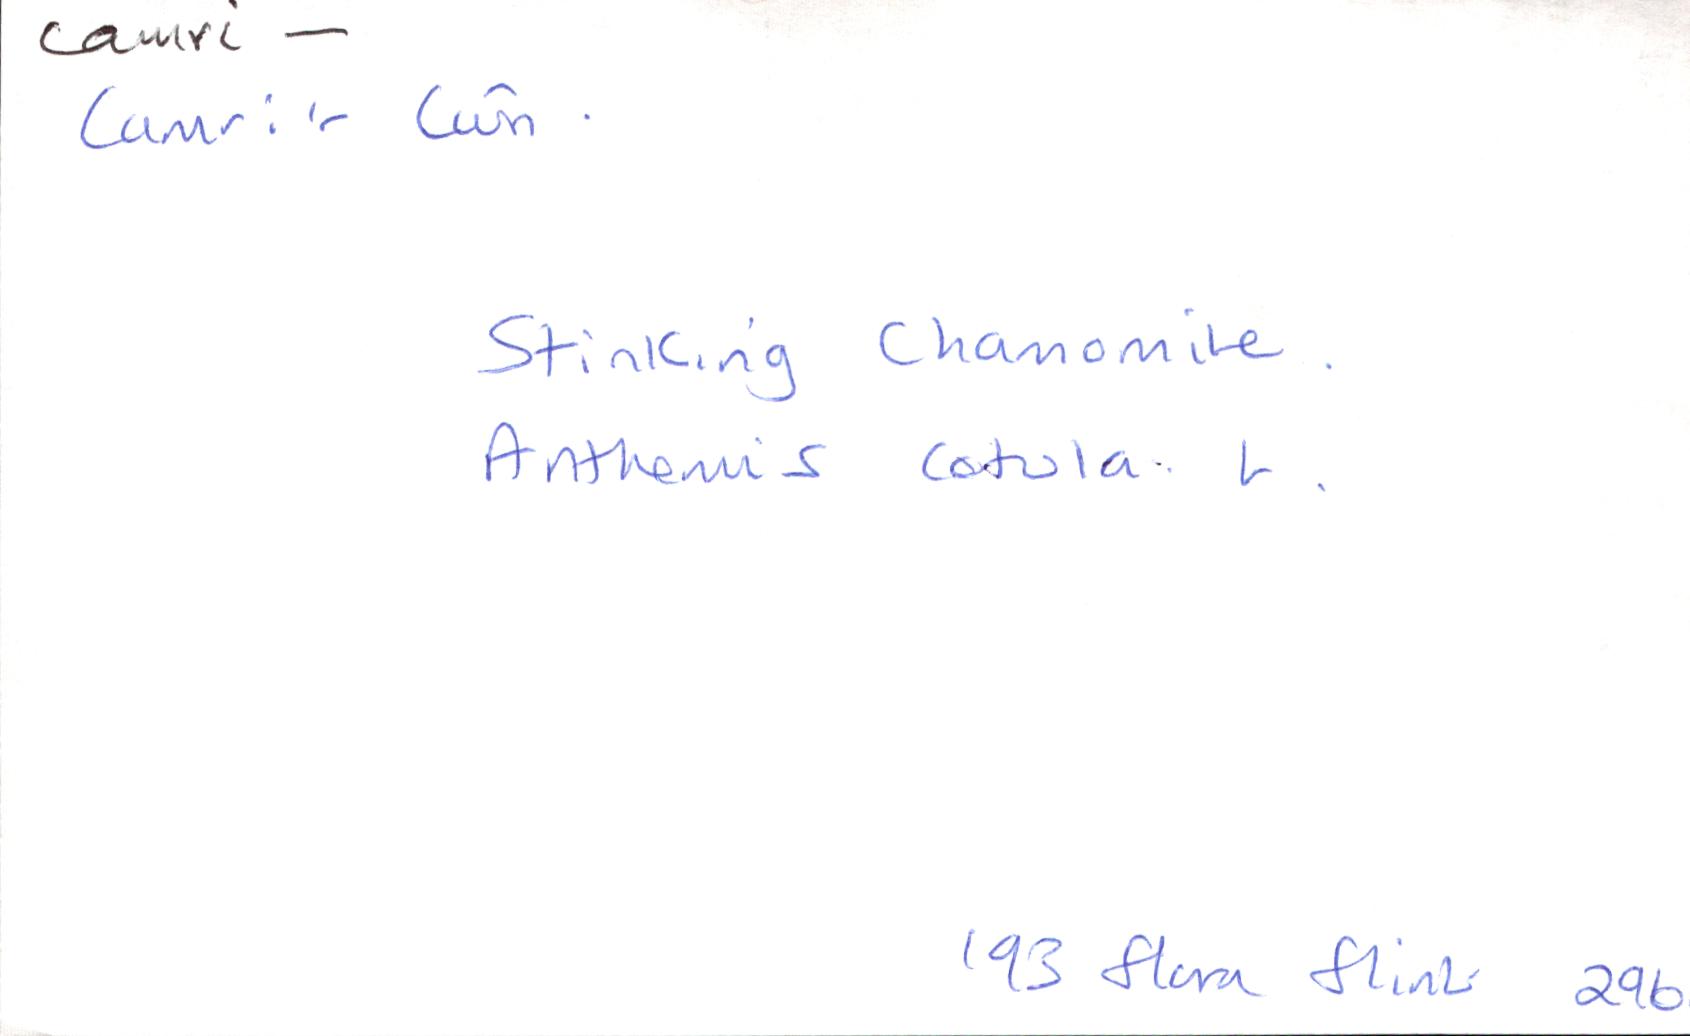 camri —
Camri'r Cŵn.
Stinking Chamomile.
Anthemis cotula. L.
193 Flora Flint 296